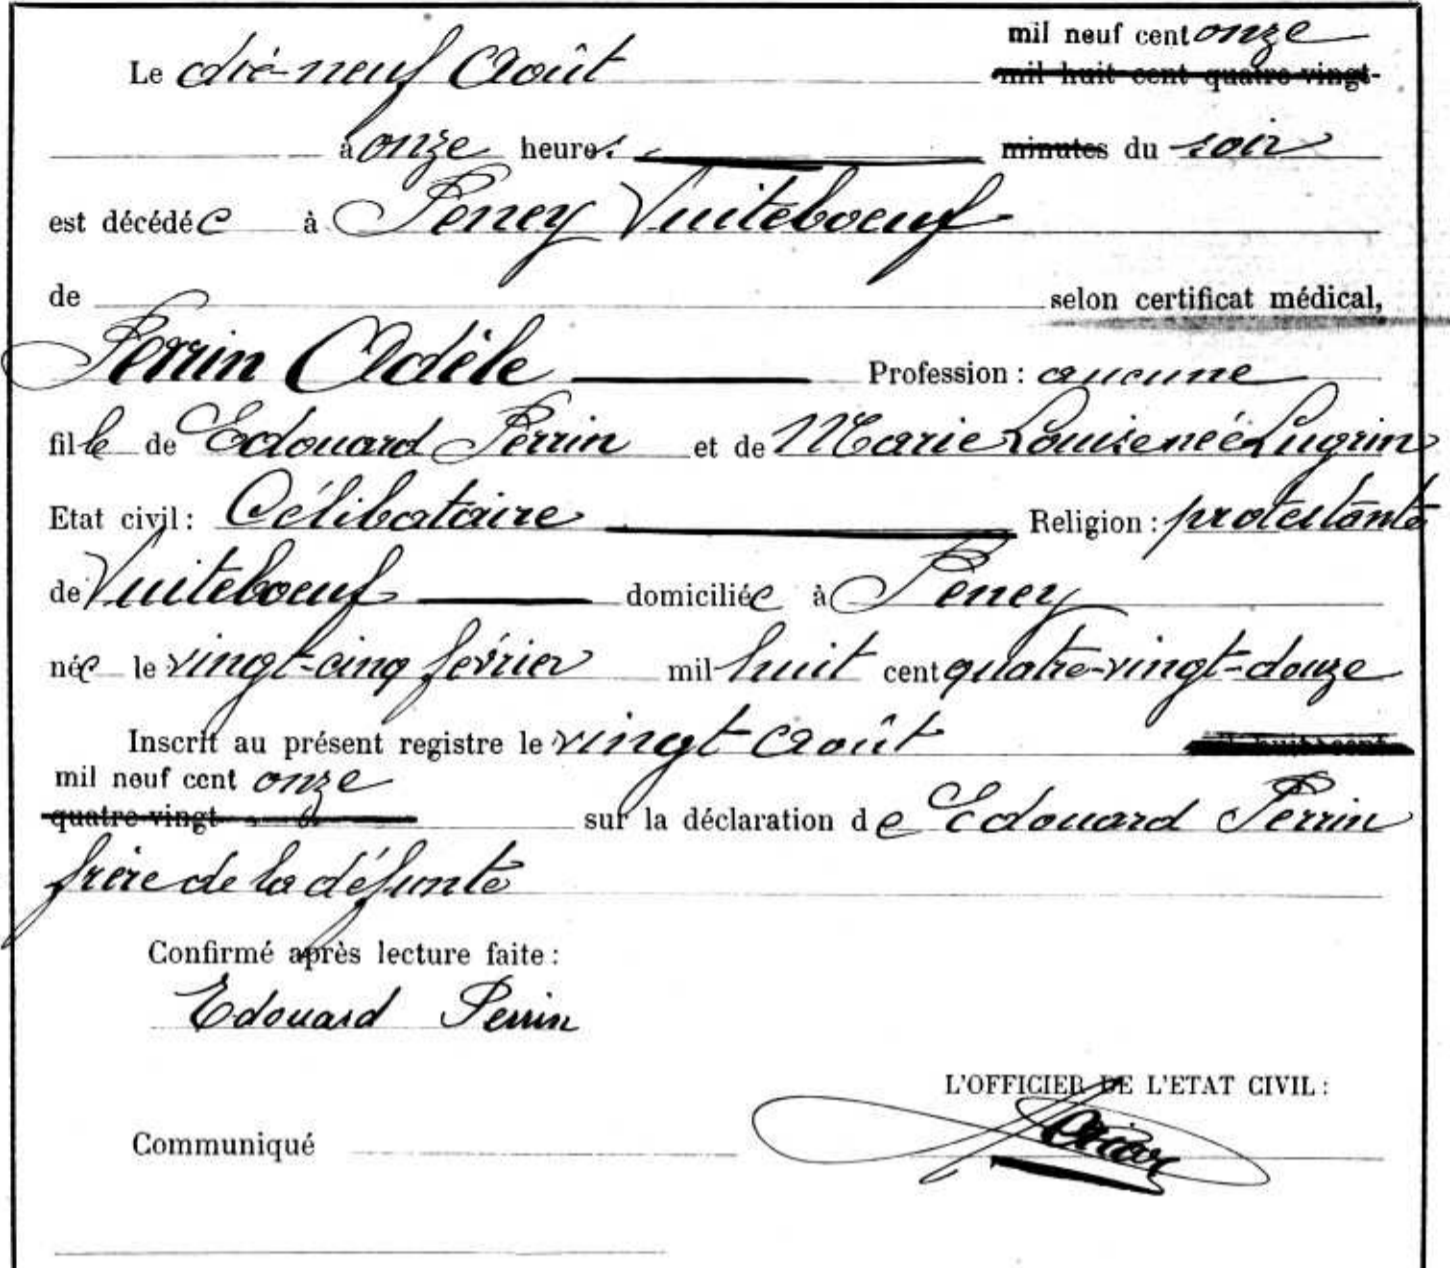 mil neuf cent onze
Le dix-neuf Août mil huit cent quatre-vingt-
à onze heures minutes du soir
est décédée à Peney Vuiteboeuf
de selon certificat médical,
Perrin Adèle Profession : aucune
fille de Edouard Perrin et de Marie Louise née Lugrin
Etat civil : Célibataire Religion : protestante
de Vuiteboeuf domiciliée à Peney
née le vingt-cinq février mil huit cent quatre-vingt-douze
Inscrit au présent registre le vingt Août
mil neuf cent onze
quatre-vingt sur la déclaration de Edouard Perrin
frère de la défunte
Confirmé après lecture faite :
Edouard Perrin
L'OFFICIER DE L'ETAT CIVIL :
Communiqué